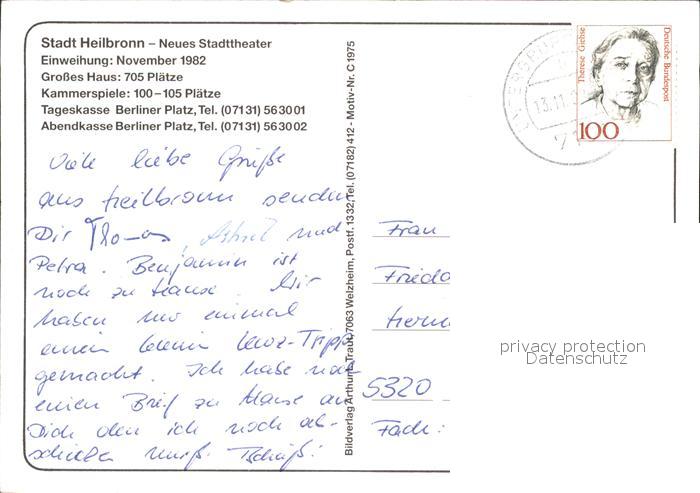 Stadt Heilbronn – Neues Stadttheater
Einweihung: November 1982
Großes Haus: 705 Plätze
Kammerspiele: 100–105 Plätze
Tageskasse Berliner Platz, Tel. (07131) 563001
Abendkasse Berliner Platz, Tel. (07131) 563002
Viele liebe Grüße
aus Heilbronn senden
Dir Thomas, Astrid und
Petra. Benjamin ist
noch zu Hause. Wir
haben nur einmal
einen kleinen Kurz-Tripp
gemacht. Ich habe noch
einen Brief zu Hause an
Dich den ich noch ab-
schicken muß. Tschüß!
Bildverlag Arthur F. Traub, 7063 Welzheim, Postf. 1332, Tel. (07182) 412 - Motiv-Nr. C 1975
Therese Giehse
Deutsche Bundespost
100
13.11.
71
Frau
Frieda
5320
Fach:
privacy protection
Datenschutz